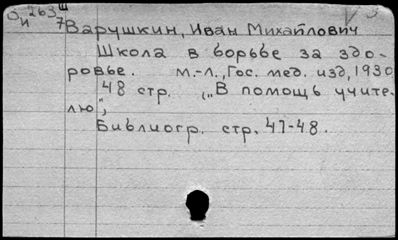 263 Ш
И 7
Варушкин, Иван Михайлович
Школа в борьбе за здо-
ровье. М.-Л., Гос. мед. изд, 1930
48 стр. („В помощь учите-
лю",
Библиогр. стр. 47-48.